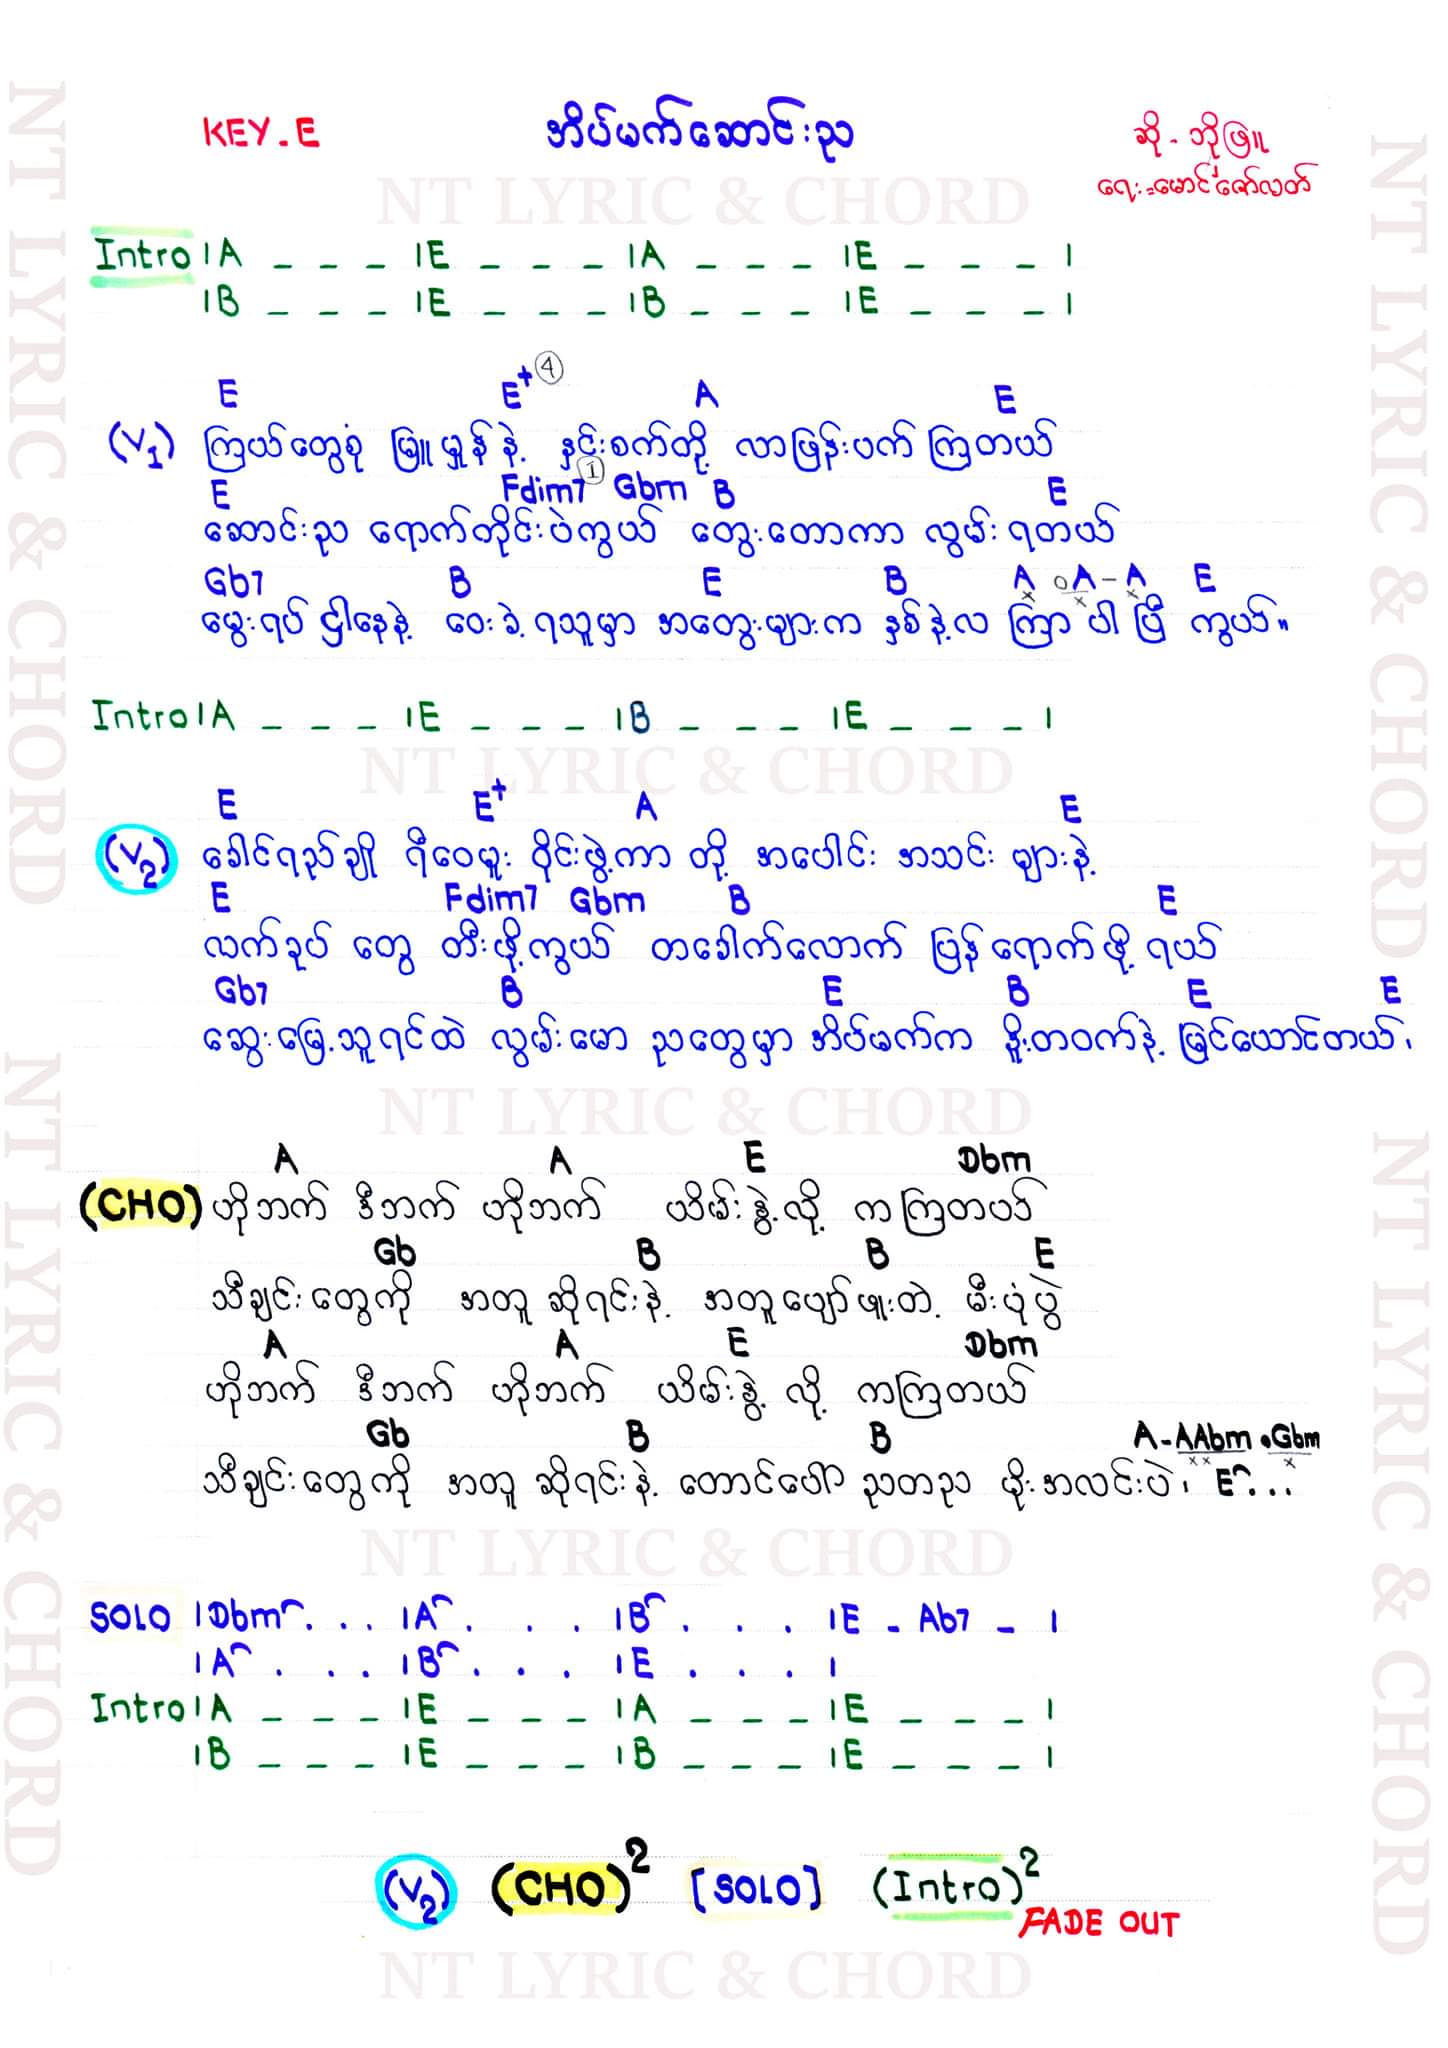 KEY.E အိပ်မက်ဆောင်းည ဆို - ဘိုဖြူ
ရေး = မောင်ဇော်လတ်
NT LYRIC & CHORD
Intro |A _ _ _ |E _ _ _ |A _ _ _ |E _ _ _ |
|B _ _ _ |E _ _ _ |B _ _ _ |E _ _ _ |
E E+ ④ A E
(V1) ကြယ်တွေစုံ မြူမှုန်နဲ့ နှင်းစက်တို့ လာဖြန်းပက်ကြတယ်
E Fdim7 ① Gbm B E
ဆောင်းည ရောက်တိုင်းပဲကွယ် တွေးတောကာ လွမ်းရတယ်
Gb7 B E B A o A - A E
မွေးရပ်ဋ္ဌါနေနဲ့ ဝေးခဲ့ရသူမှာ အတွေးများက နှစ်နဲ့လ ကြာပါပြီ ကွယ်။
Intro |A _ _ _ |E _ _ _ |B _ _ _ |E _ _ _ |
NT LYRIC & CHORD
E E+ A E
(V2) ခေါင်ရည်ချို ရီဝေမူး ဝိုင်းဖွဲ့ကာ တို့ အပေါင်း အသင်း များနဲ့
E Fdim7 Gbm B E
လက်ခုပ် တွေ တီးဖို့ကွယ် တခေါက်လောက် ပြန်ရောက်ဖို့ ရယ်
Gb7 B E B E E
ဆွေးမြေ့သူရင်ထဲ လွမ်းမော ညတွေမှာ အိပ်မက်က နိုးတဝက်နဲ့ မြင်ယောင်တယ်၊
NT LYRIC & CHORD
A A E Dbm
(CHO) ဟိုဘက် ဒီဘက် ဟိုဘက် ယိမ်းနွဲ့လို့ ကကြတယ်
Gb B B E
သီချင်းတွေကို အတူ ဆိုရင်းနဲ့ အတူပျော်ဖူးတဲ့ မီးပုံပွဲ
A A E Dbm
ဟိုဘက် ဒီဘက် ဟိုဘက် ယိမ်းနွဲ့ လို့ ကကြတယ်
Gb B B A-AAbm.Gbm
သီချင်းတွေကို အတူ ဆိုရင်းနဲ့ တောင်ပေါ် ညတည မိုးအလင်းပဲ၊ E...
NT LYRIC & CHORD
SOLO |Dbm . . . |A . . . |B . . . |E - Ab7 - |
|A . . . |B . . . |E . . . |
Intro |A _ _ _ |E _ _ _ |A _ _ _ |E _ _ _ |
|B _ _ _ |E _ _ _ |B _ _ _ |E _ _ _ |
(V2) (CHO)2 [SOLO] (Intro)2
FADE OUT
NT LYRIC & CHORD
NT LYRIC & CHORD
NT LYRIC & CHORD
NT LYRIC & CHORD
NT LYRIC & CHORD